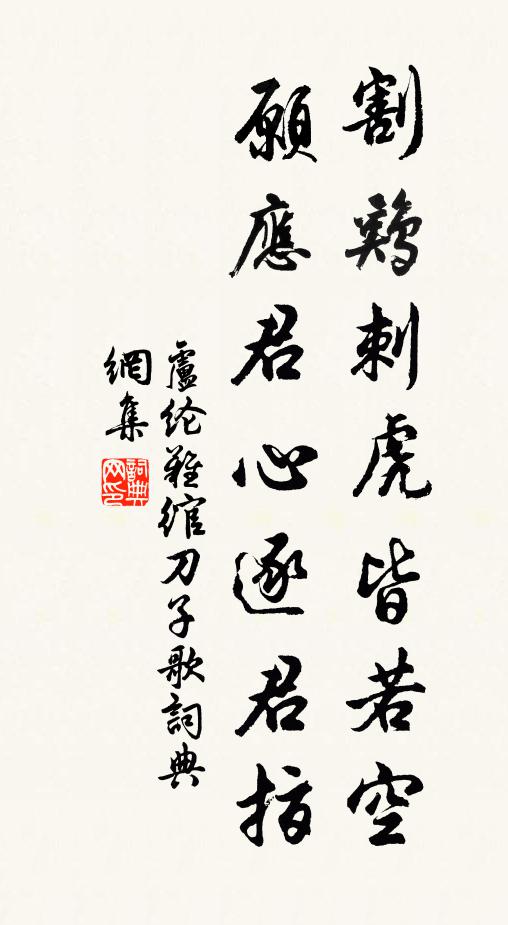 割鷄刺虎皆若空
願應君心逐君指
盧纶難綰刀子歌詞典
網集
詞典网印